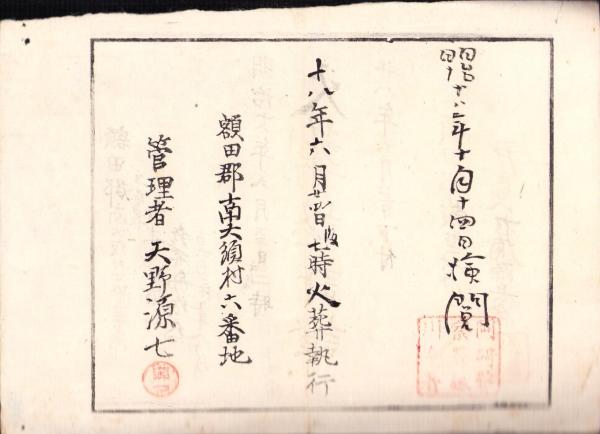 明治十八年十月十四日検閲
十八年六月廿四日午後七時火葬執行
額田郡南大須村六番地
管理者 天野源七